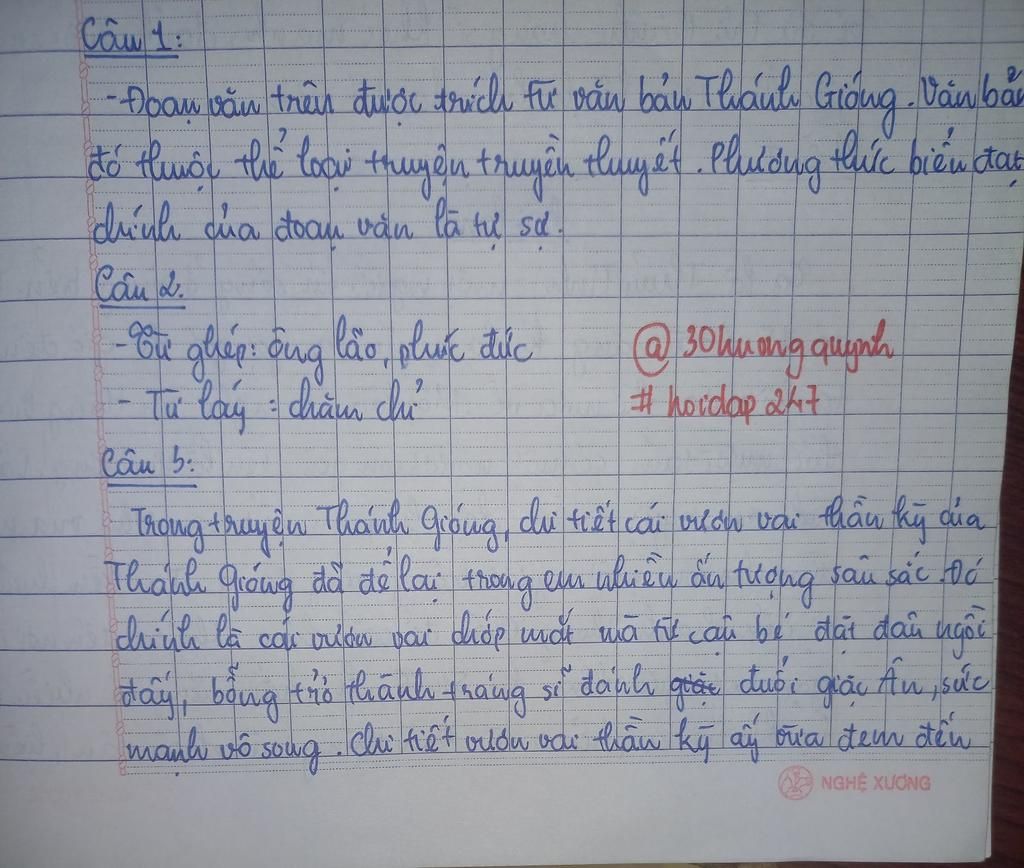 Câu 1:
- Đoạn văn trên được trích từ văn bản Thánh Gióng. Văn bản
đó thuộc thể loại truyện truyền thuyết. Phương thức biểu đạt
chính của đoạn văn là tự sự.
Câu 2.
- Từ ghép: ông lão, phúc đức
@ 30huongquynh
- Từ láy: chăm chỉ
# hoidap247
Câu 3:
Trong truyện Thánh Gióng, chi tiết cái vươn vai thần kỳ của
Thánh Gióng đã để lại trong em nhiều ấn tượng sâu sắc. Đó
chính là cái vươn vai chớp mắt mà từ cậu bé đặt đâu ngồi
đấy, bỗng trở thành tráng sĩ đánh giặc đuổi giặc Ân, sức
mạnh vô song. Chi tiết vươn vai thần kỳ ấy vừa đem đến
NGHỆ XƯƠNG